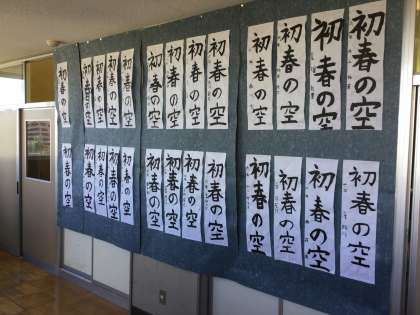 初春の空
初春の空
初春の空
初春の空
初春の空
初春の空
初春の空
初春の空
初春の空
初春の空
初春の空
初春の空
初春の空
初春の空
初春の空
初春の空
初春の空
初春の空
初春の空
初春の空
初春の空
初春の空
初春の空
初春の空
初春の空
初春の空